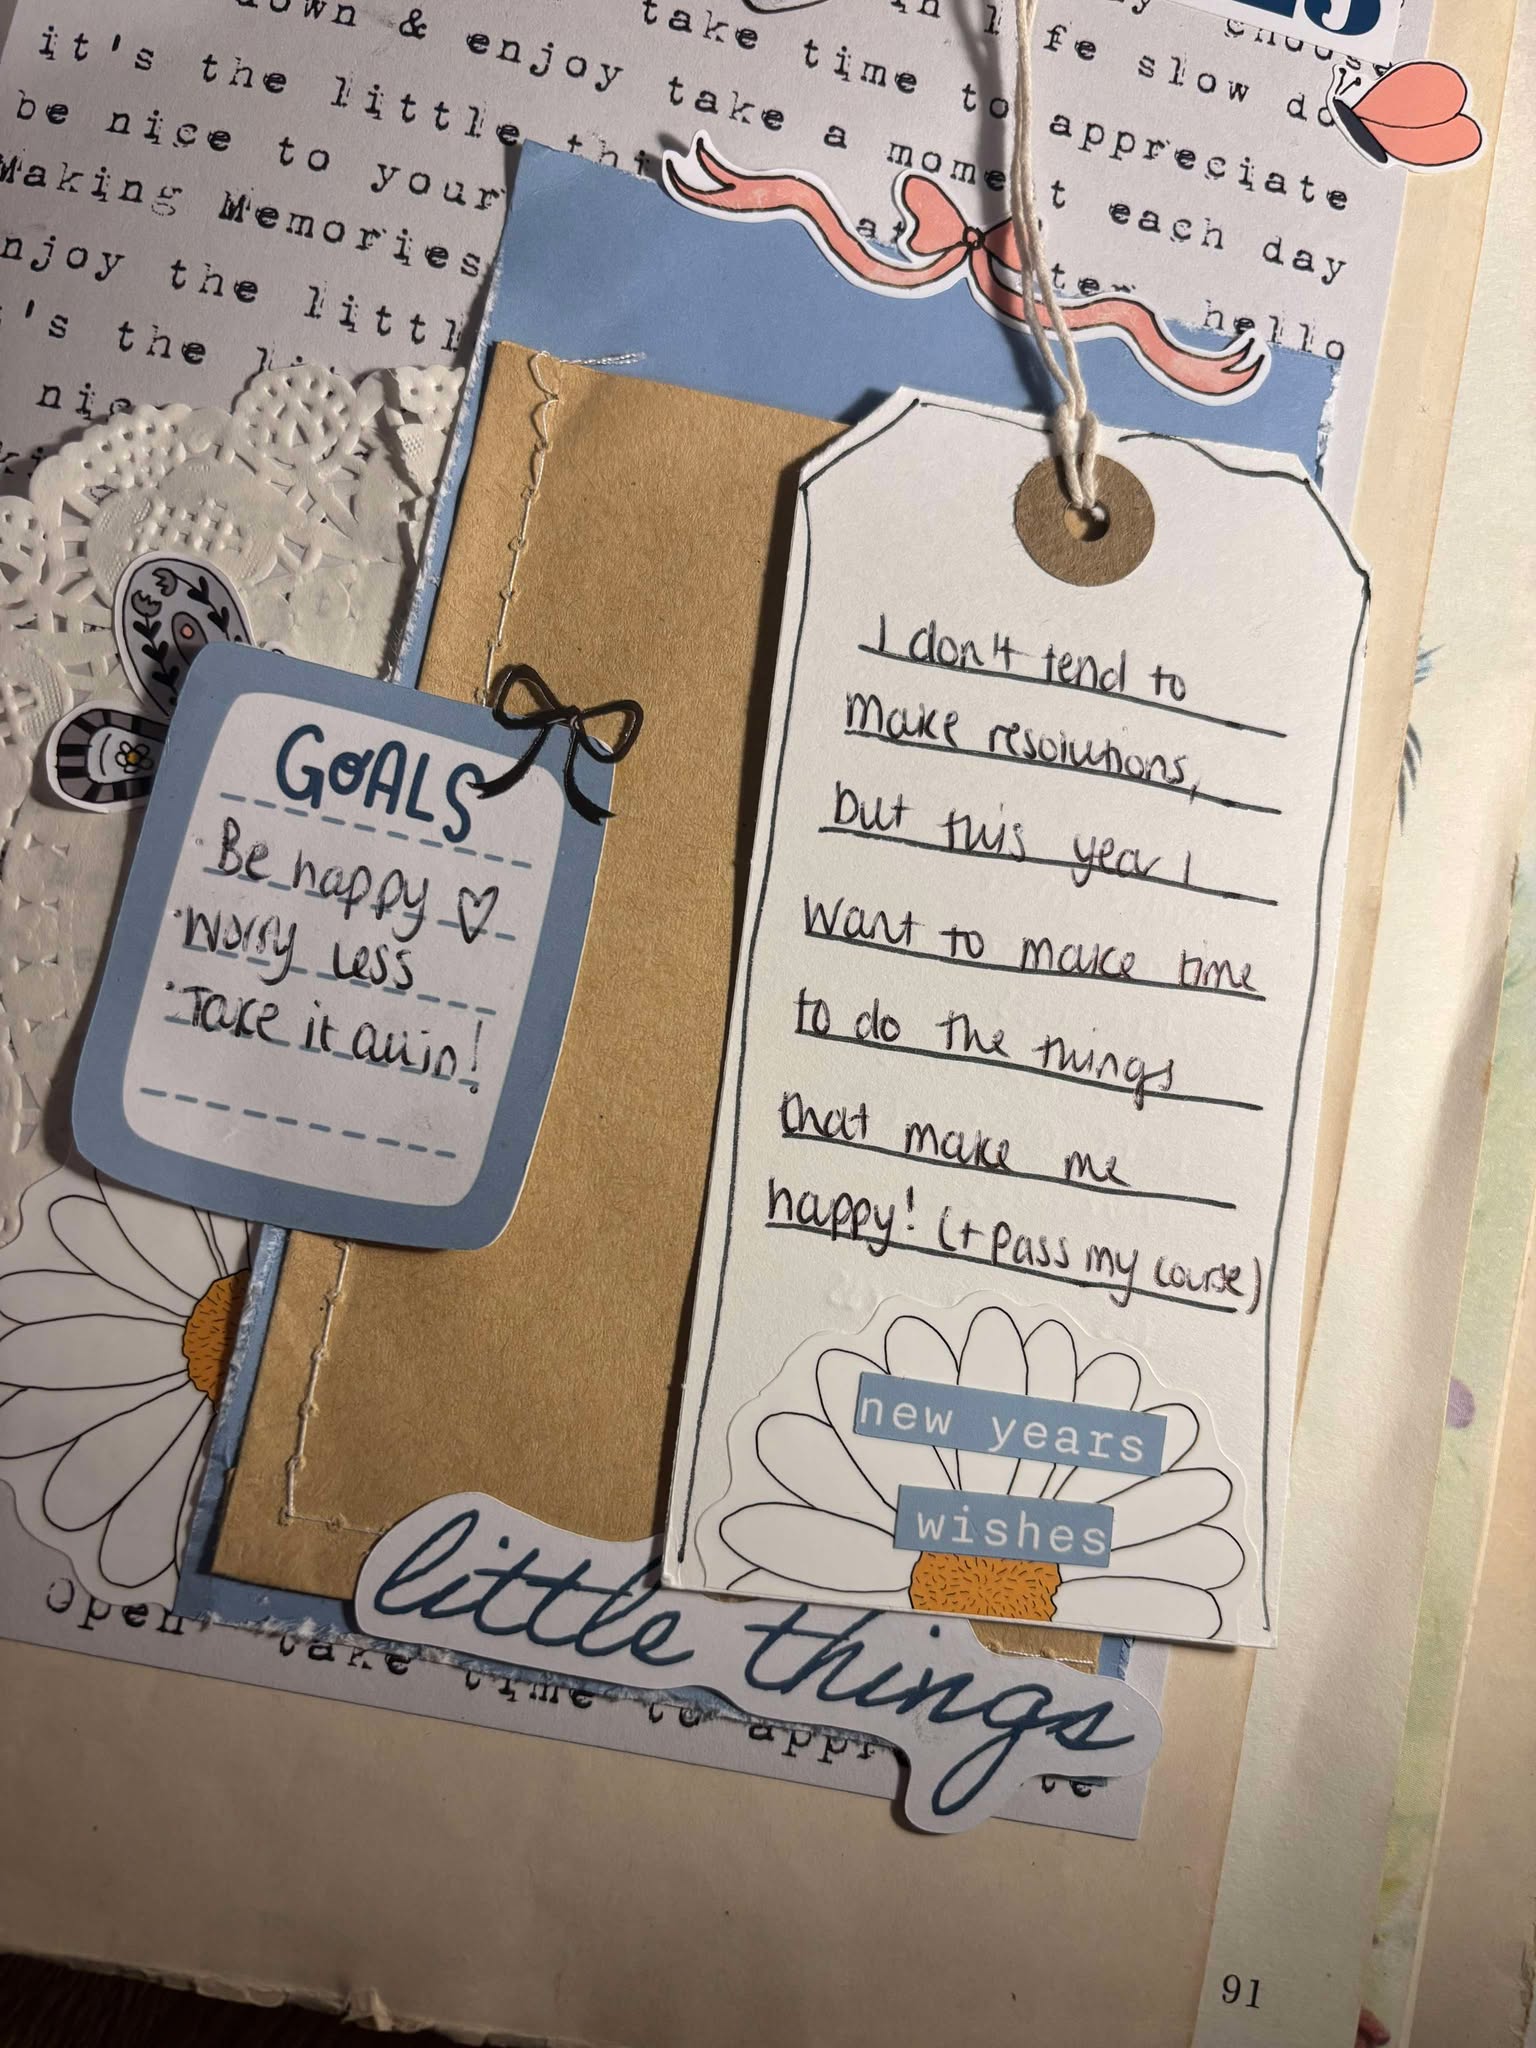 down & enjoy take time to appreciate
in life slow
choose
it's the little
take a moment each day
be nice to
hello
Making Memories
njoy the
's the
GOALS
· Be happy ♡
· Worry less
· Take it all in!
I don't tend to
make resolutions,
but this year I
want to make time
to do the things
that make me
happy! (+ pass my course)
new years
wishes
little things
Open take time to
91